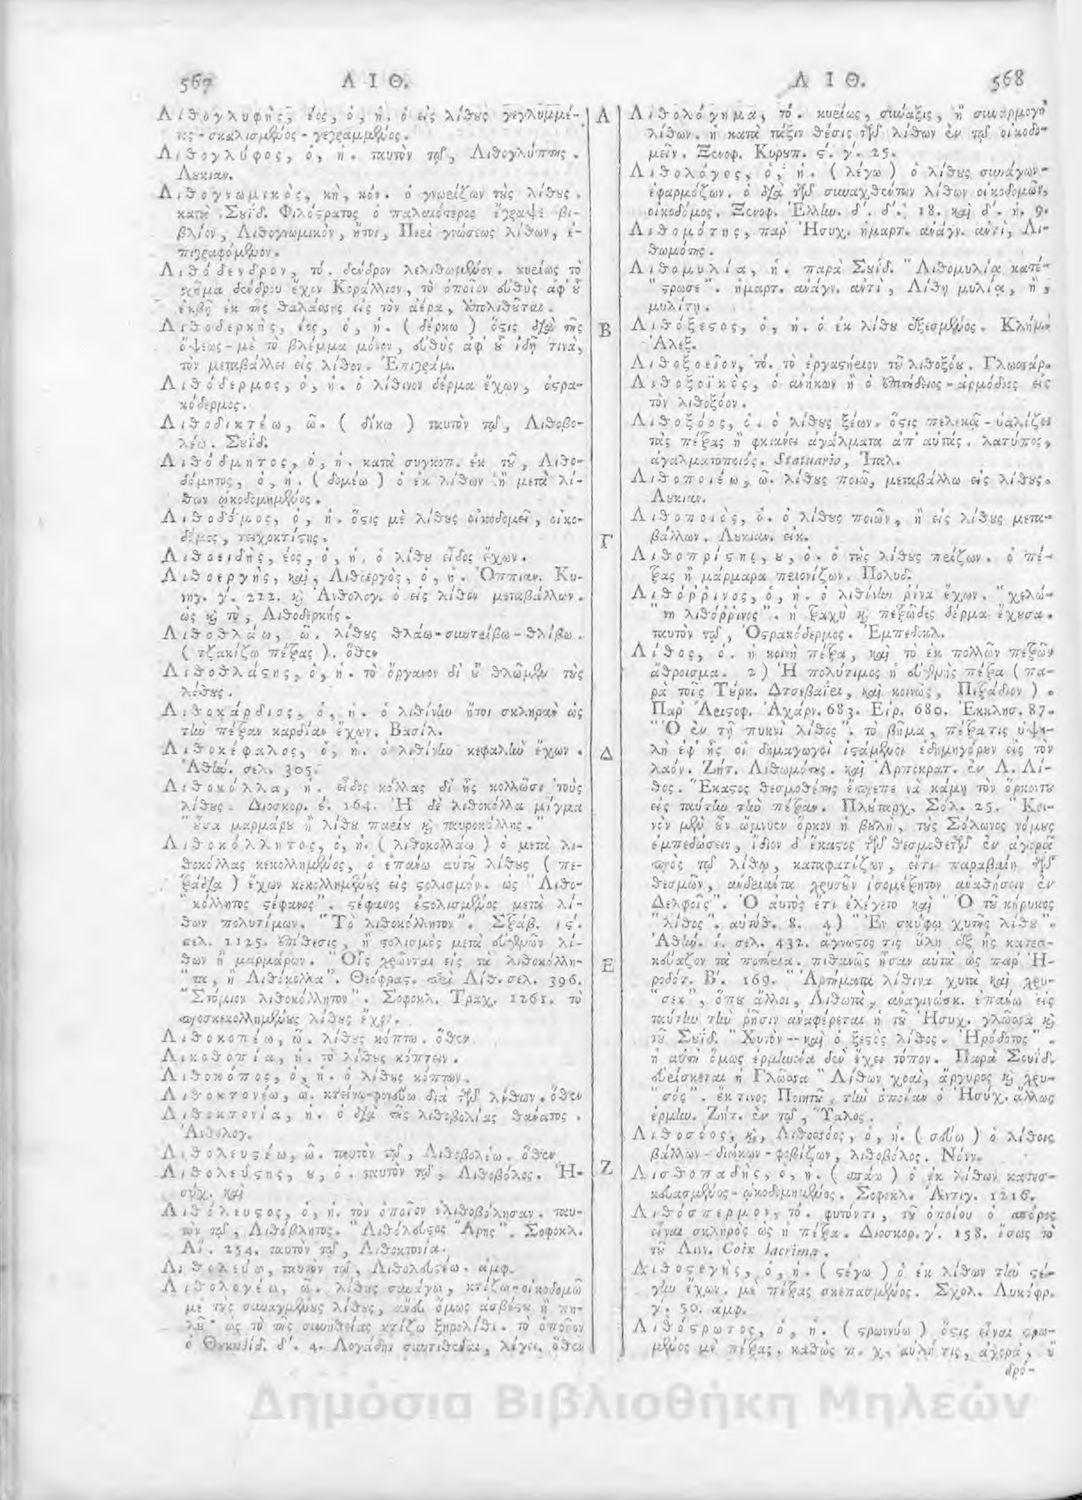 567 ΛΙΘ.
Λιθογλυφὴς, έος, ὁ, ἡ. ὁ εἰς λίθους γεγλυμμέ-
νος - σκαλισμένος - γεγραμμένος.
Λιθογλύφος, ὁ, ἡ. ταυτὸν τῷ, Λιθογλύπτης.
Λουκιαν.
Λιθογνωμικὸς, κὴ, κόν. ὁ γνωρίζων τοὺς λίθους.
κατὰ Σουΐδ. Φιλόστρατος ὁ παλαιότερος ἔγραψε βι-
βλίον, Λιθογνωμικὸν, ἤτοι, Περὶ γνώσεως λίθων, ἐ-
πιγραφόμενον.
Λιθόδενδρον, τό. δένδρον λελιθωμένον. κυρίως τὸ
σχῆμα δένδρου ἔχον Κοράλλιον, τὸ ὁποῖον εὐθὺς ἀφ' οὗ
ἐκβῇ ἐκ τῆς θαλάσσης εἰς τὸν ἀέρα, ἀπολιθοῦται.
Λιθοδερκὴς, έος, ὁ, ἡ. ( δέρκω ) ὅστις διὰ τῆς
ὄψεως - μὲ τὸ βλέμμα μόνον, εὐθὺς ἀφ' οὗ ἰδῇ τινὰ,
τὸν μεταβάλλει εἰς λίθον. Ἐπιγράμ.
Λιθόδερμος, ὁ, ἡ. ὁ λίθινον δέρμα ἔχων, ὀστρα-
κόδερμος.
Λιθοδικτέω, ῶ. ( δίκω ) ταυτὸν τῷ, Λιθοβο-
λέω. Σουΐδ.
Λιθόδμητος, ὁ, ἡ. κατὰ συγκοπ. ἐκ τοῦ, Λιθο-
δόμητος, ὁ, ἡ. ( δομέω ) ὁ ἐκ λίθων ἢ μετὰ λί-
θων ᾠκοδομημένος.
Λιθοδόμος, ὁ, ἡ. ὅστις μὲ λίθους οἰκοδομεῖ, οἰκο-
δόμος, τειχοκτίστης.
Λιθοειδὴς, έος, ὁ, ἡ. ὁ λίθου εἶδος ἔχων.
Λιθοεργὴς, καὶ, Λιθοεργὸς, ὁ, ἡ. Ὀππιαν. Κυ-
νηγ. γ'. 222. καὶ Ἀνθολογ. ὁ εἰς λίθον μεταβάλλων.
ὡς καὶ τὸ, Λιθοδερκής.
Λιθοθλάω, ῶ. λίθους θλάω - συντρίβω - θλίβω.
( τζακίζω πέτρας ). ὅθεν
Λιθοθλάστης, ὁ, ἡ. τὸ ὄργανον δι' οὗ θλῶμεν τοὺς
λίθους.
Λιθοκάρδιος, ὁ, ἡ. ὁ λιθίνην ἤτοι σκληρὰν ὡς
τὴν πέτραν καρδίαν ἔχων. Βασίλ.
Λιθοκέφαλος, ὁ, ἡ. ὁ λιθίνην κεφαλὴν ἔχων.
Ἀθήν. σελ. 305.
Λιθοκόλλα, ἡ. εἶδος κόλλας δι' ἧς κολλῶσι τοὺς
λίθους. Διοσκορ. ε'. 164. "Ἡ δὲ λιθοκόλλα μίγμα
"οὖσα μαρμάρου ἢ λίθου παρίου καὶ ταυροκόλλης."
Λιθοκόλλητος, ὁ, ἡ. ( λιθοκολλάω ) ὁ μετὰ λι-
θοκόλλας κεκολλημένος, ὁ ἐπάνω αὐτοῦ λίθους ( πε-
τράδια ) ἔχων κεκολλημένους εἰς στολισμόν. ὡς "Λιθο-
"κόλλητος στέφανος". στέφανος ἐστολισμένος μετὰ λί-
θων πολυτίμων. "Τὸ λιθοκόλλητον". Στράβ. ις'.
σελ. 1125. ἐπίθεσις, ἢ στολισμὸς μετὰ εὐθμῶν λί-
θων ἢ μαρμάρων. "Οἷς χρῶνται εἰς τὰ λιθοκόλλη-
"τα, ἢ Λιθοκόλλα". Θεόφραστ. περὶ Λίθ. σελ. 396.
"Στόμιον λιθοκόλλητον". Σοφοκλ. Τραχ. 1261. τὸ
προσκεκολλημένους λίθους ἔχον.
Λιθοκοπέω, ῶ. λίθους κόπτω. ὅθεν
Λιθοκοπία, ἡ. τὸ λίθους κόπτειν.
Λιθοκόπος, ὁ, ἡ. ὁ λίθους κόπτων.
Λιθοκτονέω, ῶ. κτείνω - φονεύω διὰ τῶν λίθων. ὅθεν
Λιθοκτονία, ἡ. ὁ διὰ τῆς λιθοβολίας θάνατος.
Ἀνθολογ.
Λιθολευστέω, ῶ. ταυτὸν τῷ, Λιθοβολέω. ὅθεν
Λιθολεύστης, ου, ὁ. ταυτὸν τῷ, Λιθοβόλος. Ἡ-
σύχ. καὶ
Λιθόλευστος, ὁ, ἡ. τὸν ὁποῖον ἐλιθοβόλησαν. ταυ-
τὸν τῷ, Λιθόβλητος. "Λιθόλευστος Ἄρης". Σοφοκλ.
Αἴ. 254. ταυτὸν τῷ, Λιθοκτονία.
Λιθολεύω, ταυτὸν τῷ, Λιθολευστέω. ἀμφ.
Λιθολογέω, ῶ. λίθους συνάγω, κτίζω - οἰκοδομῶ
μὲ τοὺς συναγμένους λίθους, ἄνευ ὅμως ἀσβέστου ἢ πη-
λοῦ· ὡς τὸ τῆς συνηθείας κτίζω ξηρολίθι. τὸ ὁποῖον
ὁ Θουκυδίδ. δ'. 4. Λογάδην συντιθέναι, λέγει. ὅθεν
Α
Β
Γ
Δ
Ε
Ζ
ΛΙΘ. 568
Λιθολόγημα, τό. κυρίως, σύναξις, ἢ συναρμογὴ
λίθων. ἡ κατὰ τάξιν θέσις τῶν λίθων ἐν τῷ οἰκοδο-
μεῖν. Ξενοφ. Κυρουπ. ς'. γ'. 25.
Λιθολόγος, ὁ, ἡ. ( λέγω ) ὁ λίθους συνάγων -
ἐφαρμόζων. ὁ διὰ τῶν συναχθέντων λίθων οἰκοδομῶν,
οἰκοδόμος. Ξενοφ. Ἑλλην. δ'. δ'. 18. καὶ δ'. η. 9.
Λιθομότης, παρ' Ἡσυχ. ἡμαρτ. ἀνάγν. ἀντὶ, Λι-
θωμότης.
Λιθομυλία, ἡ. παρὰ Σουΐδ. "Λιθομυλίᾳ κατέ-
"στρωσε". ἡμαρτ. ἀνάγν. ἀντὶ, Λίθῃ μυλίᾳ, ἢ,
μυλίτῃ.
Λιθόξεστος, ὁ, ἡ. ὁ ἐκ λίθου ἐξεσμένος. Κλήμ.
Ἀλεξ.
Λιθοξοεῖον, τό. τὸ ἐργαστήριον τοῦ λιθοξόου. Γλωσσάρ.
Λιθοξοϊκὸς, ὁ ἀνήκων ἢ ὁ ἐπιτήδειος - ἁρμόδιος εἰς
τὸν λιθοξόον.
Λιθοξόος, ὁ. ὁ λίθους ξέων. ὅστις πελεκᾷ - ὑαλίζει
τὰς πέτρας ἢ φκιάνει ἀγάλματα ἀπ' αὐτάς. λατύπος,
ἀγαλματοποιός. Statuario, Ἰταλ.
Λιθοποιέω, ῶ. λίθους ποιῶ, μεταβάλλω εἰς λίθους.
Λουκιαν.
Λιθοποιὸς, ὁ. ὁ λίθους ποιῶν, ἢ εἰς λίθους μετα-
βάλλων. Λουκιαν. εἰκ.
Λιθοπρίστης, ου, ὁ. ὁ τοὺς λίθους πρίζων. ὁ πέ-
τρας ἢ μάρμαρα πριονίζων. Πολυδ.
Λιθόρρινος, ὁ, ἡ. ὁ λιθίνην ῥῖνα ἔχων. "χελώ-
"νη λιθόρρινος". ἡ τραχὺ καὶ πετρῶδες δέρμα ἔχουσα.
ταυτὸν τῷ, Ὀστρακόδερμος. Ἐμπεδοκλ.
Λίθος, ὁ. ἡ κοινὴ πέτρα, καὶ τὸ ἐκ πολλῶν πετρῶν
ἄθροισμα. 2) Ἡ πολύτιμος ἢ εὐθμὴς πέτρα ( πα-
ρὰ τοῖς Τούρκ. Δτσεβαΐρι, καὶ κοινῶς, Πετράδιον ).
Παρ' Ἀριστοφ. Ἀχάρν. 683. Εἰρ. 680. Ἐκκλησ. 87.
"Ὁ ἐν τῇ πυκνὶ λίθος". τὸ βῆμα, πέτρα τις ὑψη-
λὴ ἐφ' ἧς οἱ δημαγωγοὶ ἱστάμενοι ἐδημηγόρουν εἰς τὸν
λαόν. Ζήτ. Λιθωμότης. καὶ Ἁρποκρατ. ἐν Λ. Λί-
θος. Ἕκαστος θεσμοθέτης ἔπρεπε νὰ κάμῃ τὸν ὅρκον του
εἰς ταύτην τὴν πέτραν. Πλούταρχ. Σόλ. 25. "Κοι-
νὸν μὲν οὖν ὤμνυεν ὅρκον ἡ βουλὴ, τοὺς Σόλωνος νόμους
ἐμπεδώσειν, ἴδιον δ' ἕκαστος τῶν θεσμοθετῶν ἐν ἀγορᾷ
πρὸς τῷ λίθῳ, καταφατίζων, εἴτι παραβαίη τῶν
θεσμῶν, ἀνδριάντα χρυσοῦν ἰσομέτρητον ἀναθήσειν ἐν
Δελφοῖς". Ὁ αὐτὸς ἔτι ἐλέγετο καὶ "Ὁ τοῦ κήρυκος
"λίθος". αὐτόθ. 8. 4) "Ἐν σκύφῳ χυτῆς λίθου".
Ἀθήν. ί. σελ. 432. ἄγνωστος τις ὕλη ἐξ ἧς κατεσ-
κεύαζον τὰ ποτήρια. πιθανῶς ἦσαν αὐτὰ ὡς παρ' Ἡ-
ροδότ. Β'. 169. "Ἀρτήματα λίθινα χυτὰ καὶ χρυ-
"σεα", ὅπου ἄλλοι, Λιθωτὰ, ἀναγινώσκ. ἐπάνω εἰς
ταύτην τὴν ῥῆσιν ἀναφέρεται ἡ τοῦ Ἡσυχ. γλῶσσα καὶ
τοῦ Σουΐδ. "Χυτὸν -- καὶ ὁ ξεστὸς λίθος. Ἡρόδοτος".
ἡ αὐτὴ ὅμως ἑρμηνεία δὲν ἔχει τόπον. Παρὰ Σουΐδ.
εὑρίσκεται ἡ Γλῶσσα "Λίθων χοαὶ, ἄργυρος καὶ χρυ-
"σός". ἔκ τινος Ποιητοῦ, τὴν ὁποίαν ὁ Ἡσύχ. ἄλλως
ἑρμην. Ζήτ. ἐν τῷ, Ὕαλος.
Λιθοσόος, καὶ, Λιθοσσόος, ὁ, ἡ. ( σεύω ) ὁ λίθους
βάλλων - διώκων - φοβίζων, λιθοβόλος. Νόνν.
Λισθοπαδὴς, ὁ, ἡ. ( σπάω ) ὁ ἐκ λίθων κατεσ-
κευασμένος - ᾠκοδομημένος. Σοφοκλ. Ἀντιγ. 1216.
Λιθόσπερμον, τό. φυτόν τι, τοῦ ὁποίου ὁ σπόρος
εἶναι σκληρὸς ὡς ἡ πέτρα. Διοσκορ. γ'. 158. ἴσως τὸ
τοῦ Λιν. Coix lacrima.
Λιθοστεγὴς, ὁ, ἡ. ( στέγω ) ὁ ἐκ λίθων τὴν στέ-
γην ἔχων. μὲ πέτρας σκεπασμένος. Σχολ. Λυκόφρ.
γ. 50. ἀμφ.
Λιθόστρωτος, ὁ, ἡ. ( στρωννύω ) ὅστις εἶναι στρω-
μένος μὲ πέτρας, καθὼς π. χ. αὐλή τις, ἀγορὰ, ἢ
δρό-
Δημόσια Βιβλιοθήκη Μηλεών